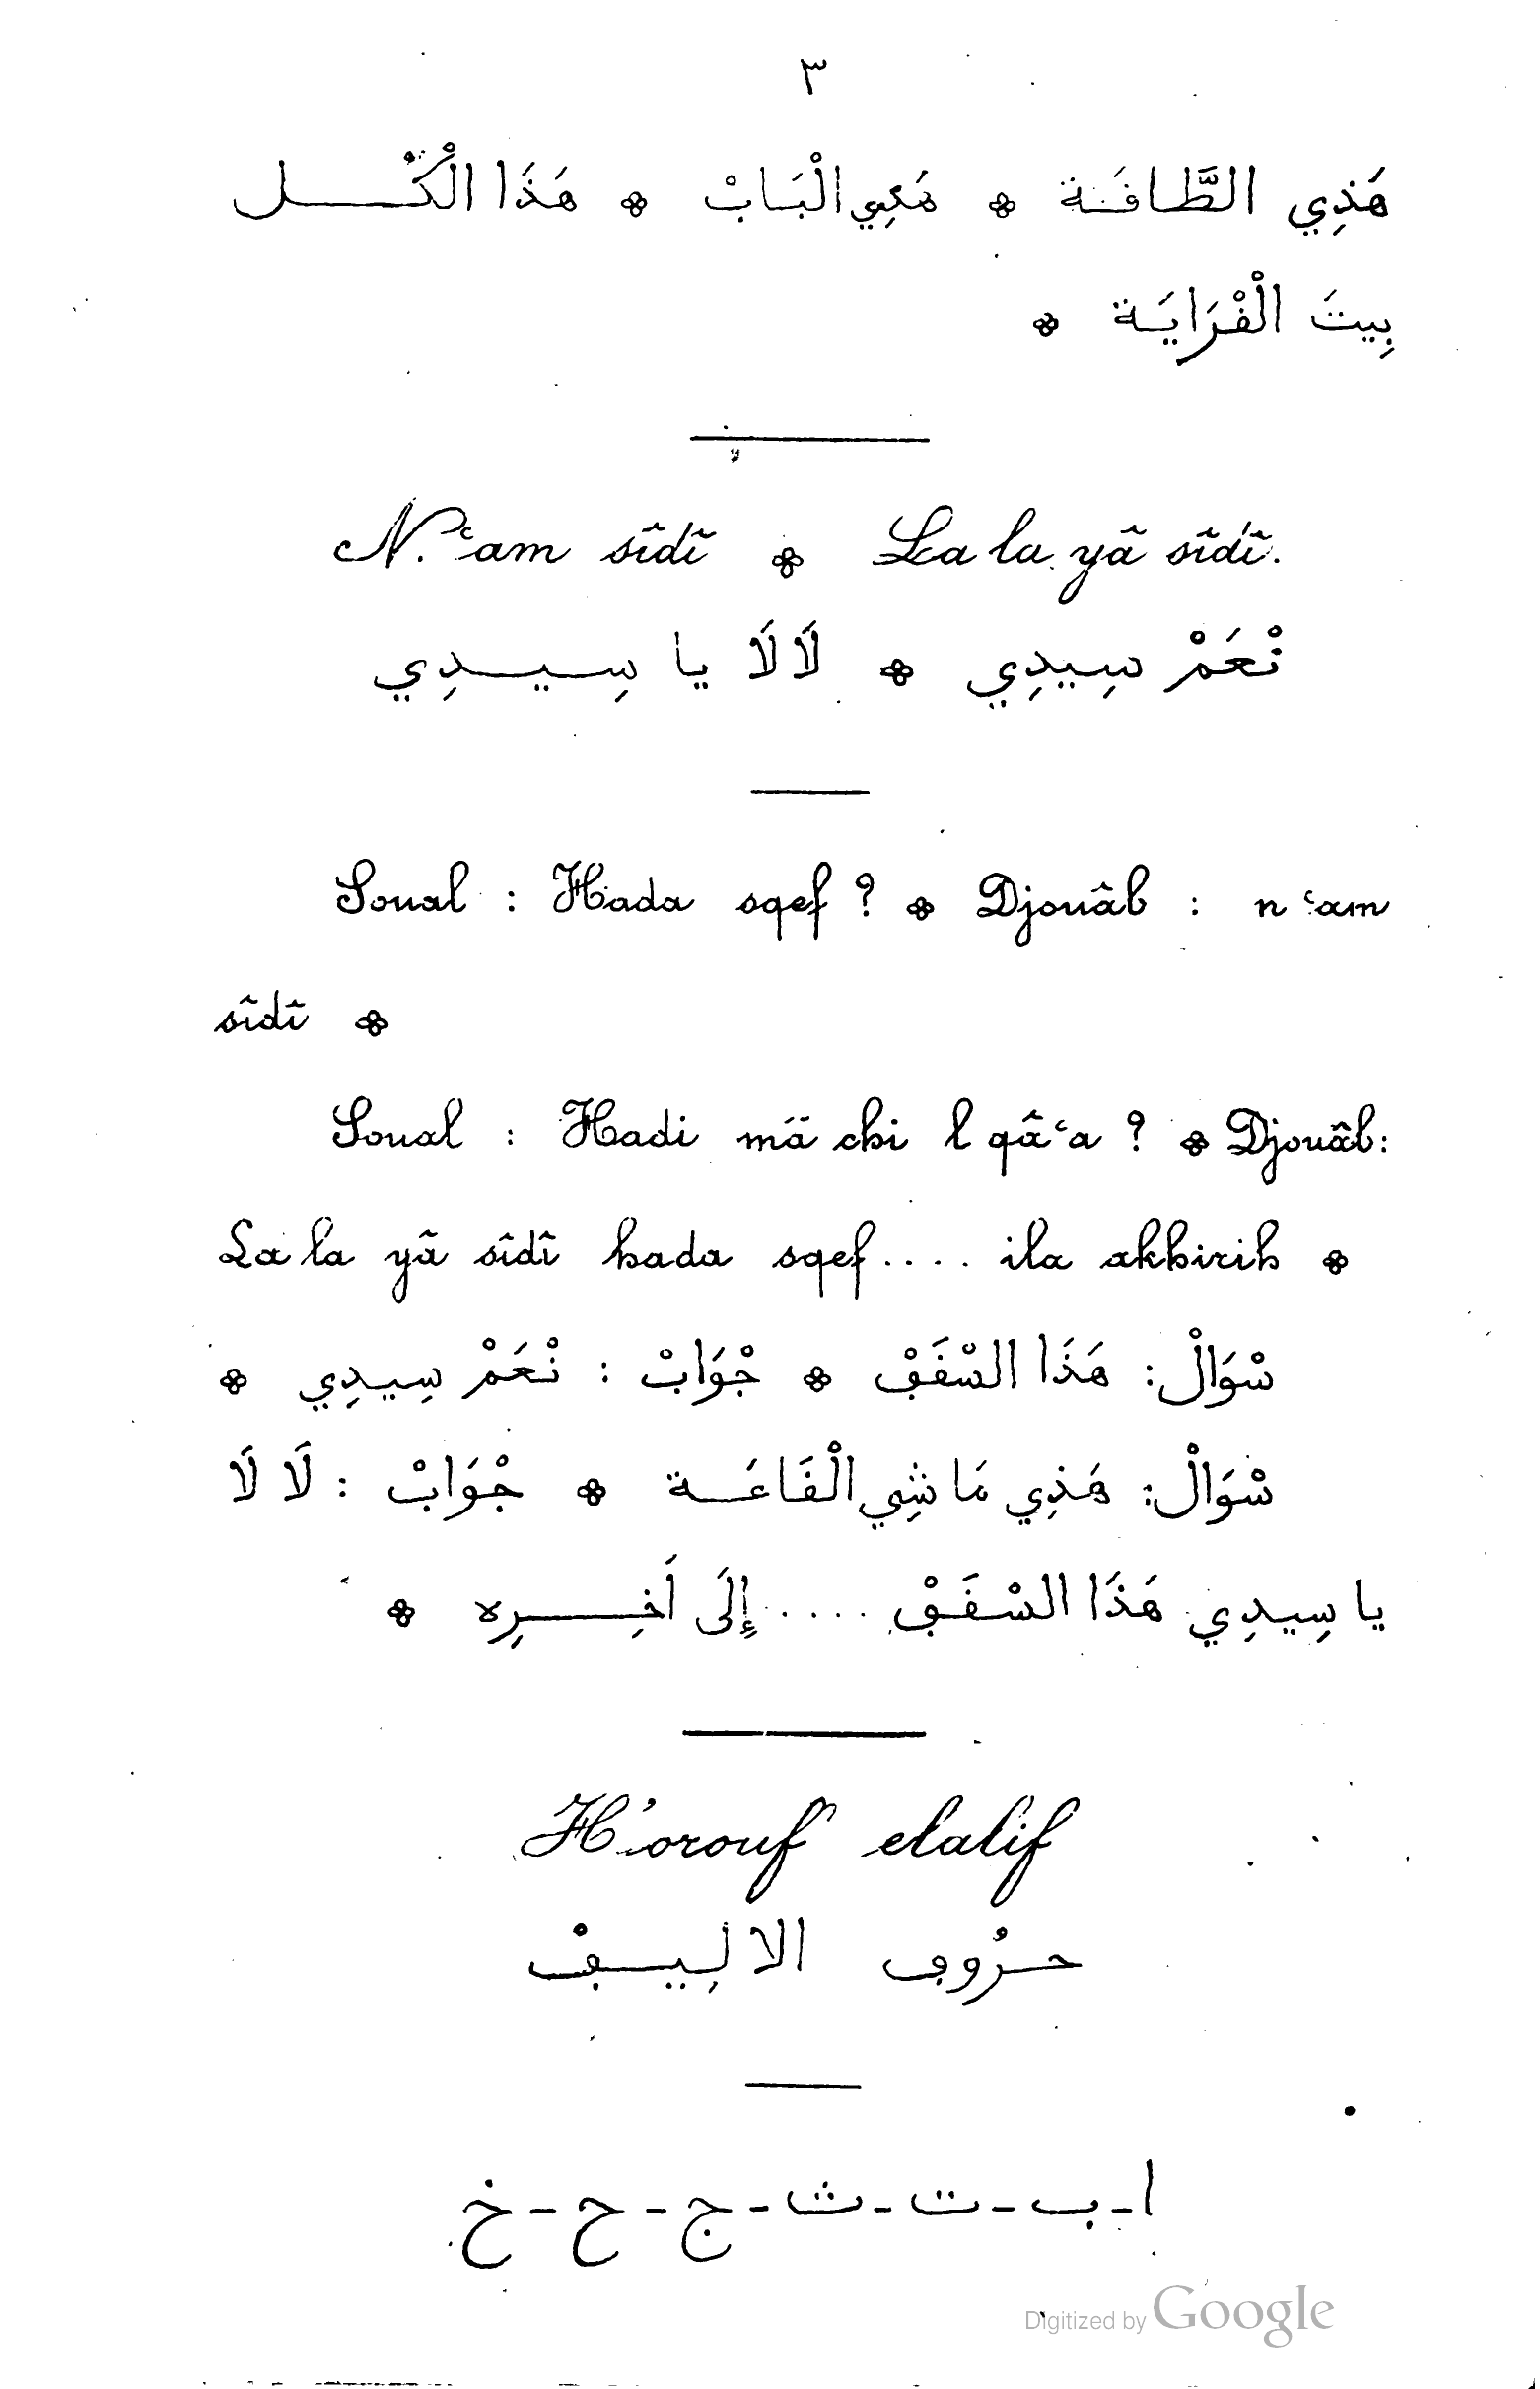 ٣
هَذِي الطَّاڧَة ❊ الْبَابْ ❊ هَذَا الْكُـــل
بِيتَ الْڧْرَايَة ❊
N.ʿam sîdî ❊ La la yâ sîdî.
نْعَمْ سِيدِي ❊ لَا لَا يا سِـيـدِي
Soual : Hada sqef ? ❊ Djouâb : n ʿam
sîdî ❊
Soual : Hadi mä chi l qâʿa ? ❊ Djouâb :
La la yâ sîdî hada sqef .... ila akhirih ❊
سْوَالْ : هَذَا السْڧَڢْ ❊ جْوَابْ : نْعَمْ سِيدِي ❊
سْوَالْ : هَذِي مَا شِي الْڧَاعَـة ❊ جْوَابْ : لَا لَا
يا سِيدِي هَذَا السْڧَڢْ .... إِلَى اَخِـــرِه ❊
H'orouf elalif
حـرُوڢ الالِيـڢْ
ا - ب - ت - ث - ج - ح - خ
Digitized by Google